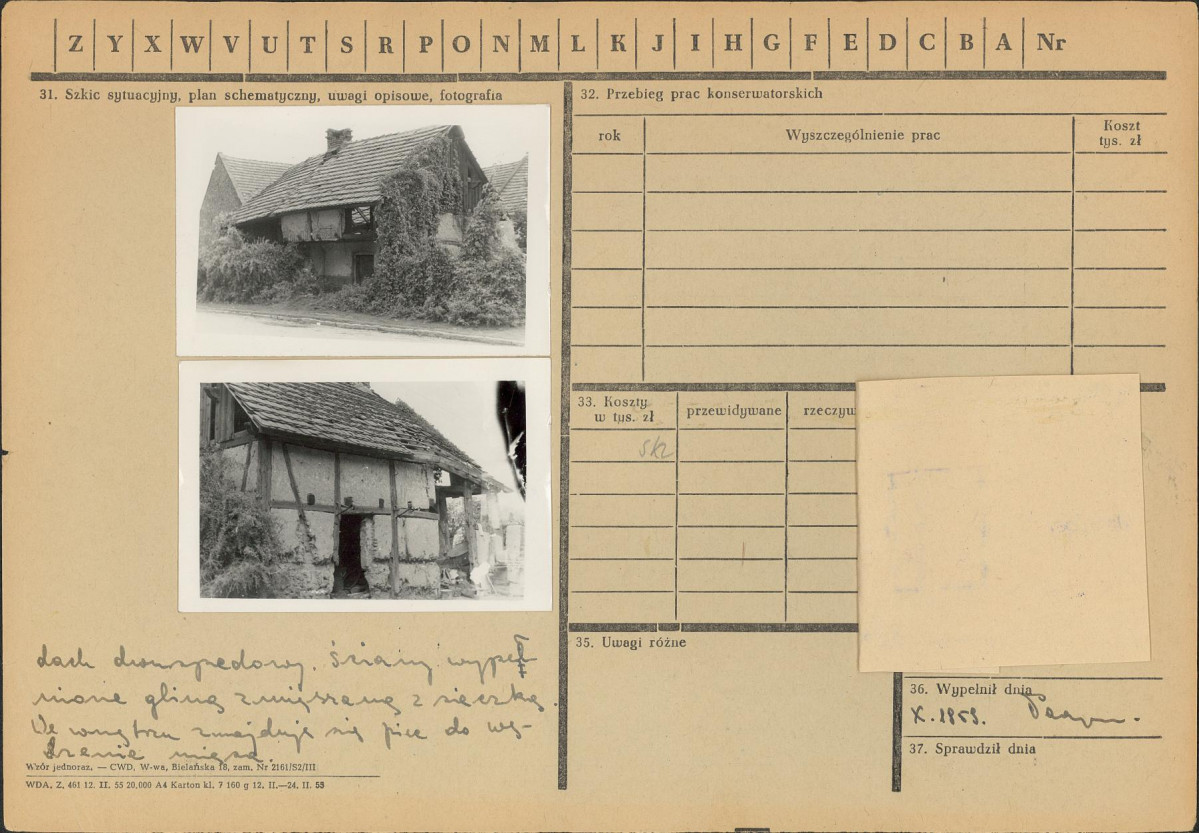 Z Y X W V U T S R P O N M L K J I H G F E D C B A Nr
31. Szkic sytuacyjny, plan schematyczny, uwagi opisowe, fotografia
dach dwuspadowy. Ściany wypeł
nione gliną zmięszaną z sieczką.
We wnętrzu znajduje się piec do wę-
dzenia mięsa.
Wzór jednoraz. — CWD, W-wa, Bielańska 18, zam. Nr 2161/S2/III
WDA, Z. 461 12. II. 55 20.000 A4 Karton kl. 7 160 g 12. II.—24. II. 55
32. Przebieg prac konserwatorskich
rok Wyszczególnienie prac Koszt
tys. zł
33. Koszty
w tys. zł przewidywane rzeczyw
35. Uwagi różne
36. Wypełnił dnia
X. 1959.
37. Sprawdził dnia